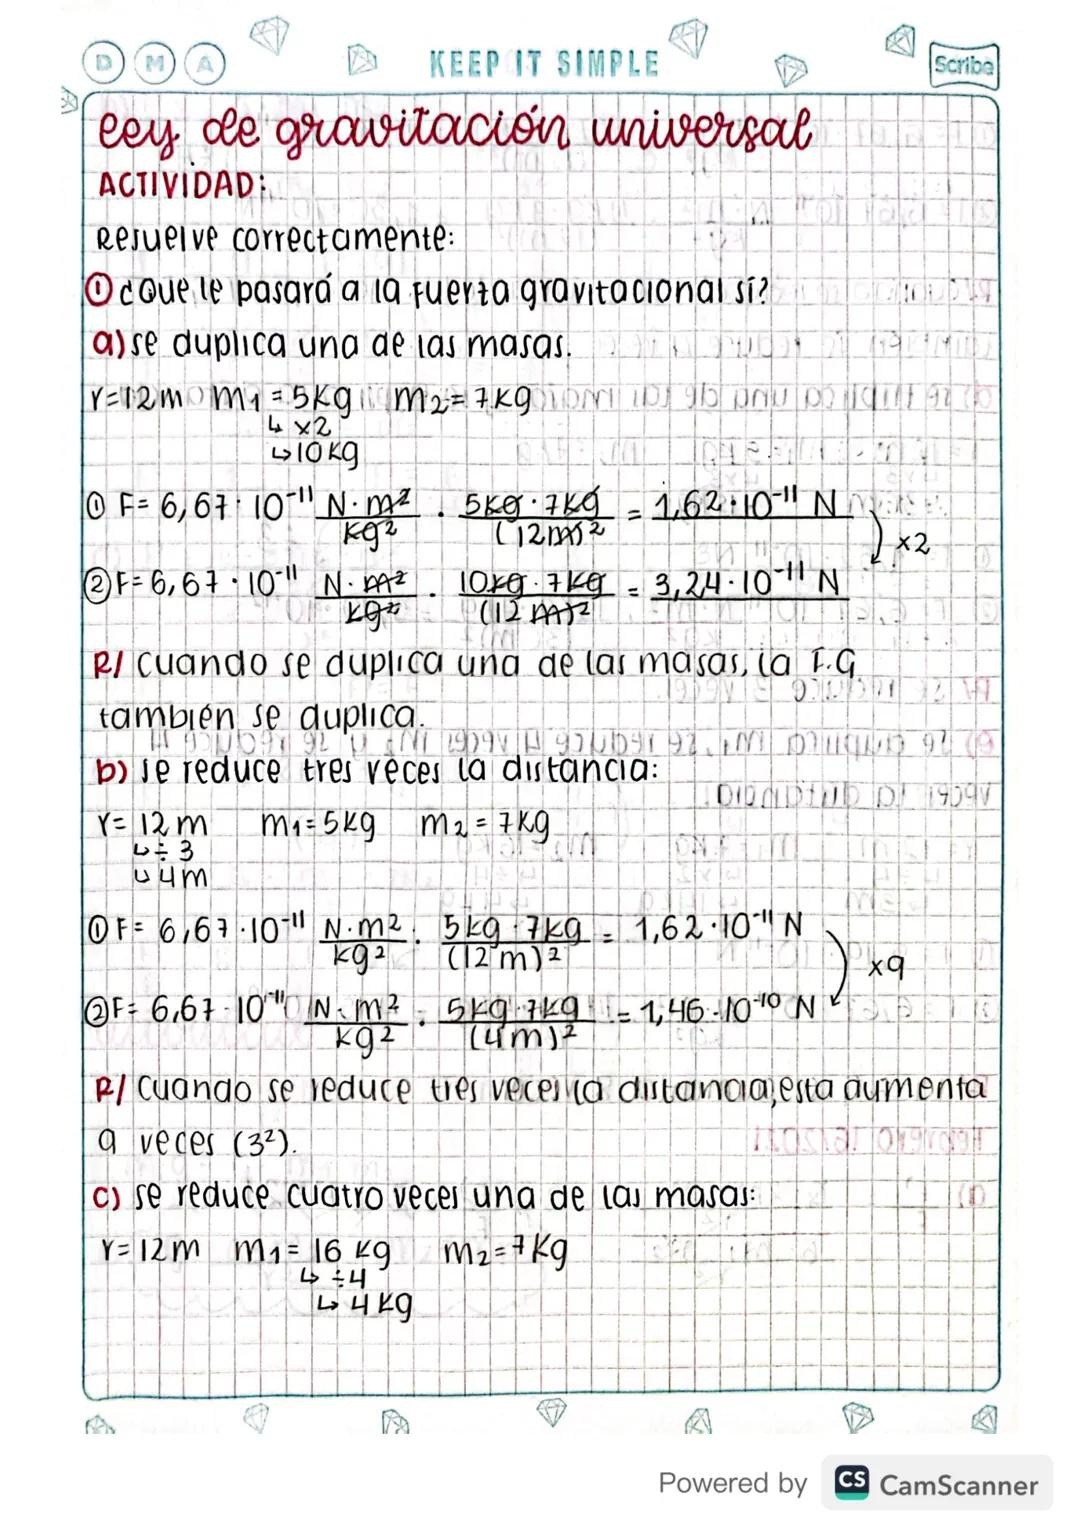 D M A
KEEP IT SIMPLE
Scribe
Ley de gravitación universal
ACTIVIDAD:
Resuelve correctamente:
① ¿Que le pasará a la fuerza gravitacional sí?
a) se duplica una de las masas.
r=12m m₁=5Kg m₂=7Kg
↳ x2
↳10Kg
① F= 6,67·10⁻¹¹ N·m²/Kg² · 5Kg·7Kg/(12m)² = 1,62·10⁻¹¹ N
x2
② F= 6,67·10⁻¹¹ N·m²/Kg² · 10Kg·7Kg/(12m)² = 3,24·10⁻¹¹ N
R/ Cuando se duplica una de las masas, la F.G
también se duplica.
b) se reduce tres veces la distancia:
r= 12m m₁=5Kg m₂=7Kg
↳÷3
↳4m
① F= 6,67·10⁻¹¹ N·m²/Kg² · 5Kg·7Kg/(12m)² = 1,62·10⁻¹¹ N
x9
② F= 6,67·10⁻¹¹ N·m²/Kg² · 5Kg·7Kg/(4m)² = 1,46·10⁻¹⁰ N
R/ Cuando se reduce tres veces la distancia, esta aumenta
9 veces (3²).
c) se reduce cuatro veces una de las masas:
r=12m m₁= 16 Kg m₂=7Kg
↳ ÷4
↳ 4 Kg
Powered by CS CamScanner